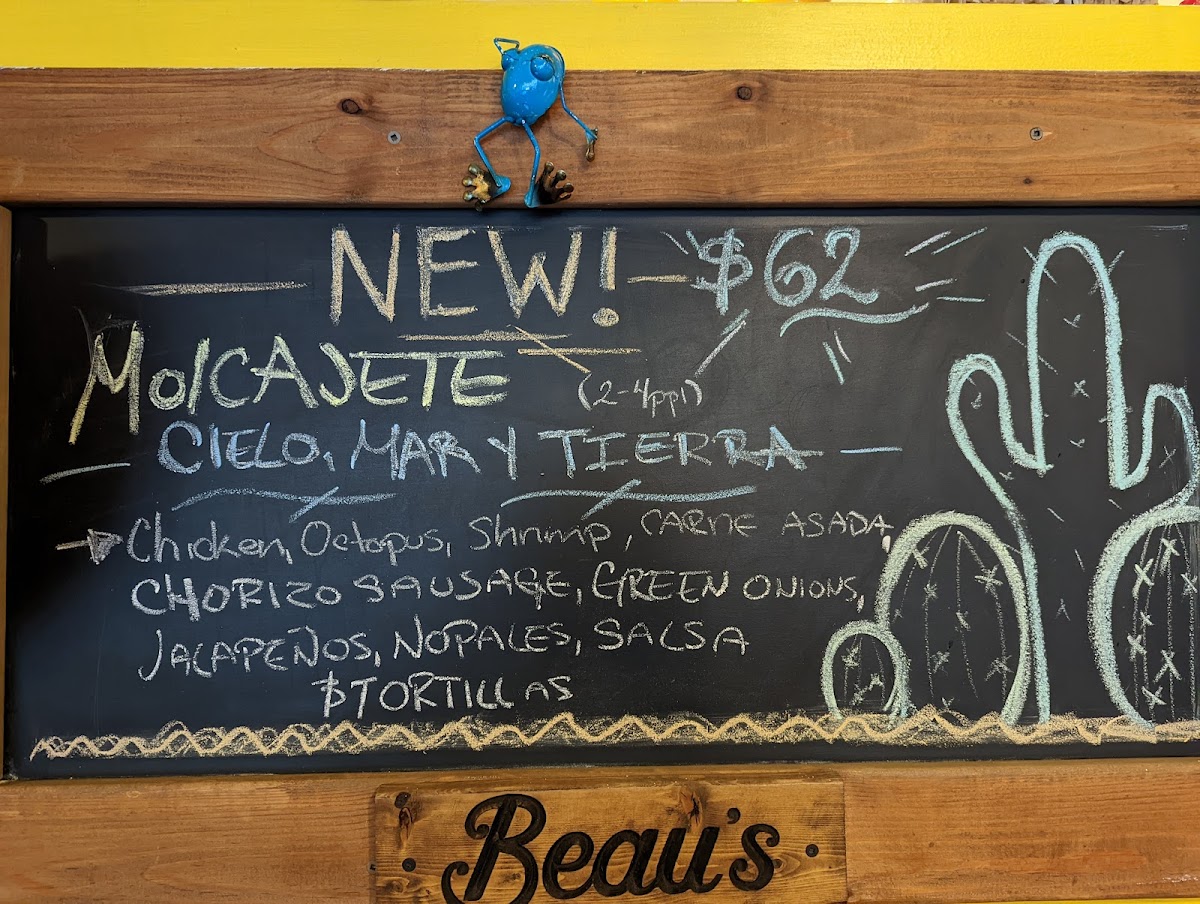 NEW! $62
MolCAJETE (2-4ppl)
CIELO, MAR Y TIERRA
Chicken, Octopus, Shrimp, CARNE ASADA,
CHORIZO SAUSAGE, GREEN ONIONS,
JALAPEÑOS, NOPALES, SALSA
& TORTILLAS
Beau's